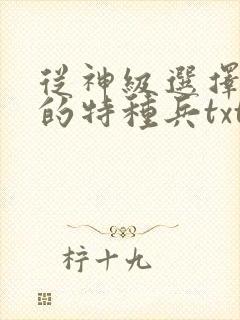 從神級選擇
的特種兵txt
柠十九